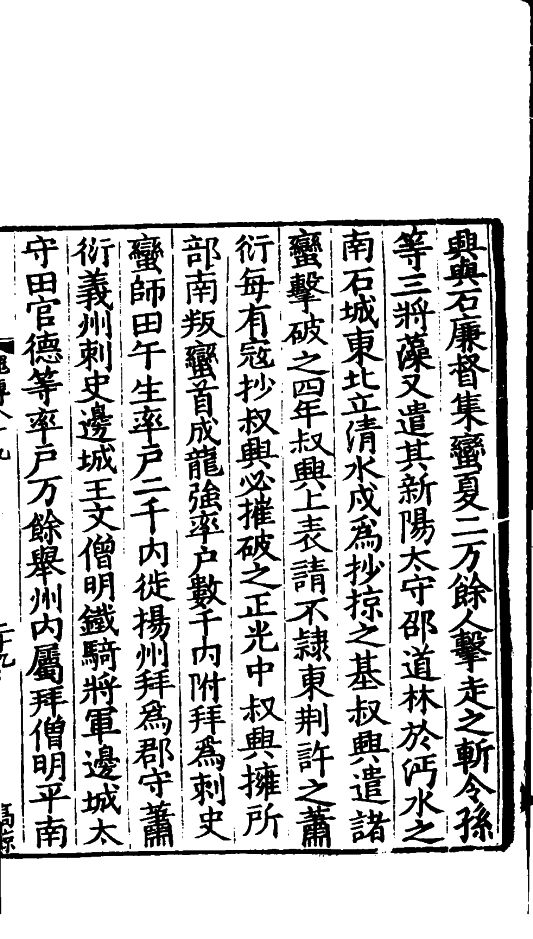 興與石廉督集蠻夏二万餘人擊走之斬令孫
等三將藻又遣其新陽太守邵道林於沔水之
南石城東北立清水戍爲抄掠之基叔興遣諸
蠻擊破之四年叔興上表請不隷東荆許之蕭
衍每有寇抄叔興必摧破之正光中叔興擁所
部南叛蠻首成龍強率户數千内附拜爲刺史
蠻師田午生率戸二千内徙揚州拜爲郡守蕭
衍義州刺史邊城王文僧明鐵騎將軍邊城太
守田官德等率戸万餘舉州内屬拜僧明平南